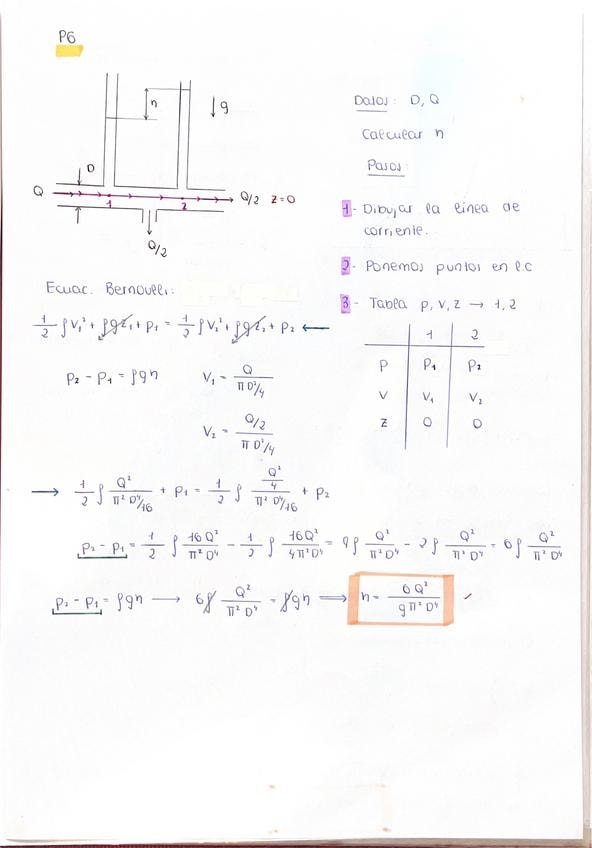 P6
D
h
↓g
Q
1
2
Q/2 z=0
Q/2
Datos: D, Q
Calcular h
Pasos:
1- Dibujar la línea de
corriente.
2- Ponemos puntos en l.c
3- Tabla p, v, z → 1, 2
1 2
P P₁ P₂
V V₁ V₂
z 0 0
Ecuac. Bernoulli:
1/2 ρV₁² + ρgz₁ + P₁ = 1/2 ρV₂² + ρgz₂ + P₂ ←
P₂ - P₁ = ρgh V₁ = Q / (π D²/4)
V₂ = (Q/2) / (π D²/4)
→ 1/2 ρ Q² / (π² D⁴/16) + P₁ = 1/2 ρ (Q²/4) / (π² D⁴/16) + P₂
P₂ - P₁ = 1/2 ρ 16Q² / (π² D⁴) - 1/2 ρ 16Q² / (4π² D⁴) = 8ρ Q² / (π² D⁴) - 2ρ Q² / (π² D⁴) = 6ρ Q² / (π² D⁴)
P₂ - P₁ = ρgh → 6ρ Q² / (π² D⁴) = ρgh ⟹ h = 6Q² / (g π² D⁴)